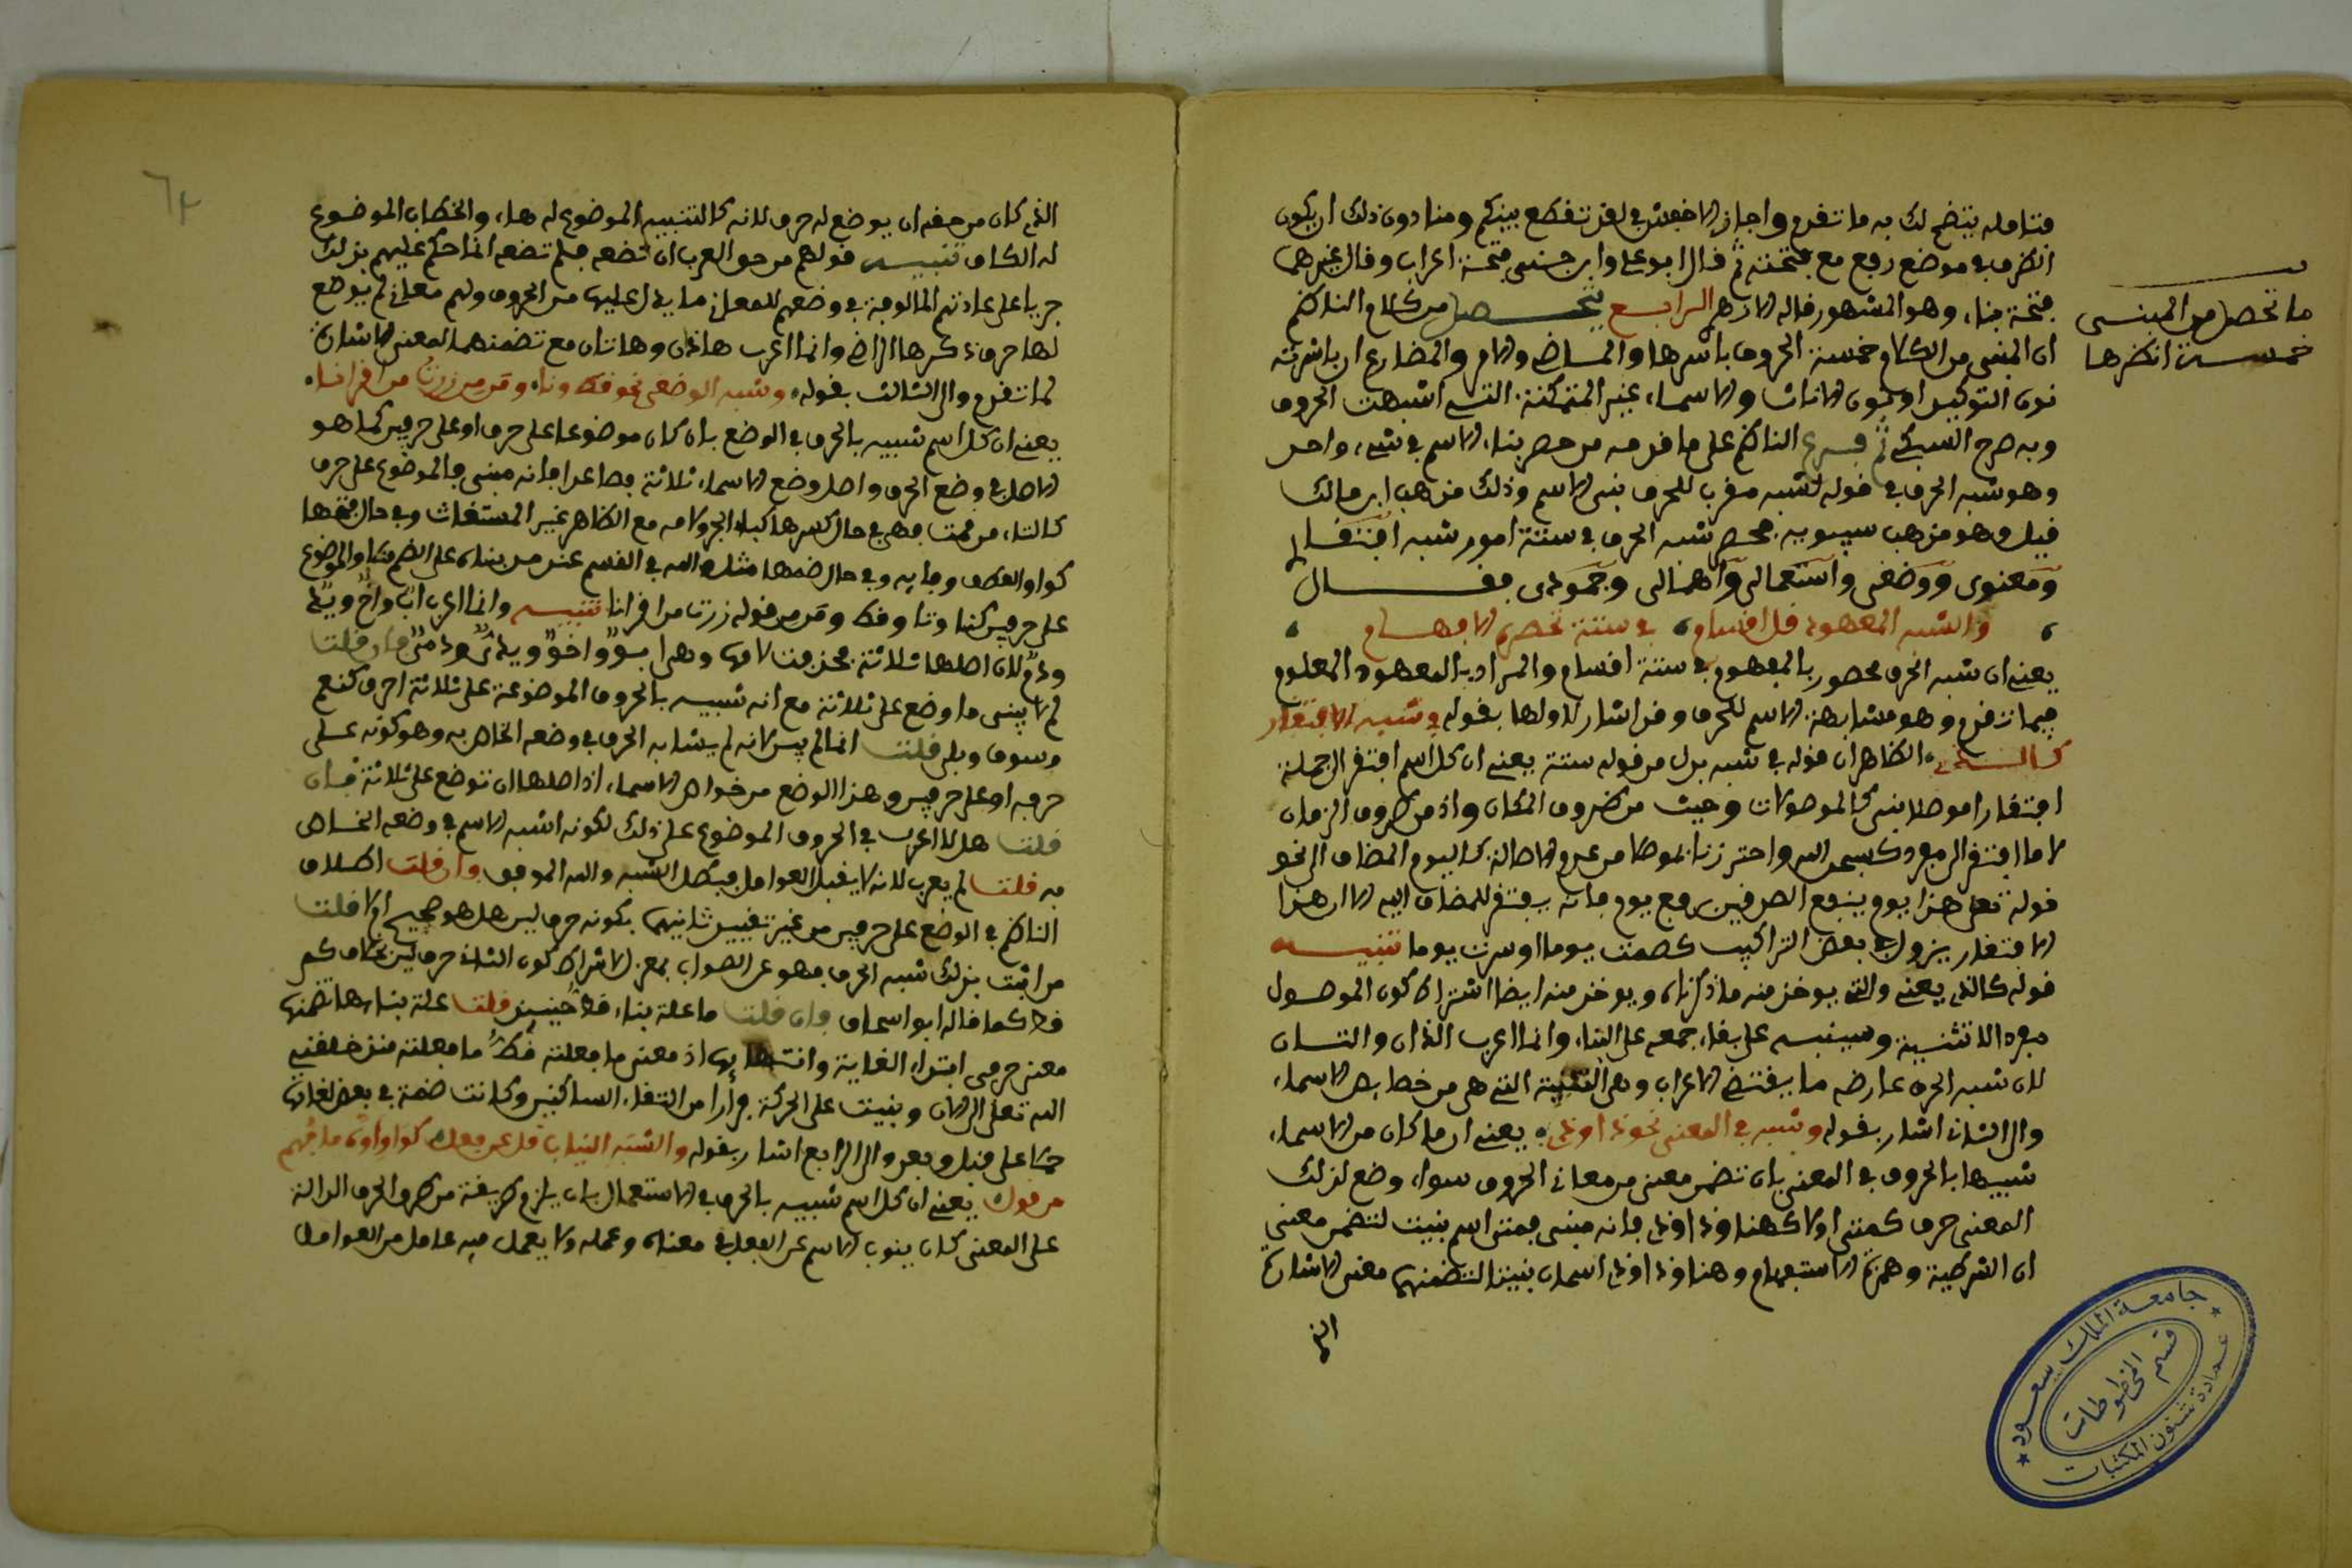 فتامله يتضح لك به ما تقدم واجاز الاخفش في لقد تقطع بينكم ومنا دون ذلك ان يكون
الظرف في موضع رفع مع فتحته ثم قال ابو علي وابن جني فتحة اعراب وقال غيرهما
فتحة بناء وهو المشهور قاله الازهري الرابع يتحصل من كلام الناظم
ان المبني من الكلام خمسة الحروف باسرها والماضي والامر والمضارع ان باشرته
نون التوكيد او نون الاناث والاسماء غير المتمكنة التي اشبهت الحروف
وبه صرح السبكي ثم فرع الناظم على ما قدمه من حصر بناء الاسم في شيء واحد
وهو شبه الحرف في قوله لشبه مقرب للحرف بني الاسم وذلك مذهب ابن مالك
قيل وهو مذهب سيبويه فحصر شبه الحرف في ستة امور شبه افتقاري
ومعنوي ووضعي واستعمالي واهمالي وجمودي فقال
والشبه المعهود قل اقسام في ستة تحصره الافهام
يعني ان شبه الحرف محصور بالمفهوم في ستة اقسام والمراد بالمعهود المعلوم
فيما تقدم وهو مشابهة الاسم للحرف وقد اشار لاولها بقوله في شبه الافتقار
كالذي الظاهر ان قوله في شبه بدل من قوله ستة يعني ان كل اسم افتقر الى جملة
افتقارا موصلا بني كالموصولات وحيث من ظروف المكان واذ من ظروف الزمان
لا ما افتقر الى مفرد كسبحان الله واحترزنا بموصلا من عدم الاصالة كاليوم المضاف الى نحو
قوله تعلى هذا يوم ينفع الصدقين برفع يوم فانه يفتقر للمضاف اليه الا ان هذا
الافتقار يزول في بعض التراكيب كصمت يوما او سرت يوما تنبيه
قوله كالذي يعني والتي يوخذ منه ما ذكرناه ويوخذ منه ايضا اشتراط كون الموصول
مفردا لا تثنية وسينبه على بقاء جمعه على البناء وانما اعرب اللذان واللتان
لان شبه الحرف عارضه ما يقتضي الاعراب وهي التثنية التي هي من خصايص الاسماء
والى الثاني اشار بقوله وشبه في المعنى نحو ذا وذي يعني ان ما كان من الاسماء
شبيها بالحروف في المعنى بان تضمن معنى من معاني الحروف سواء وضع لذلك
المعنى حرف كمتى او لا كهنا وذا وذي فانه مبني فمتى اسم بنيت لتضمن معنى
ان الشرطية وهمزة الاستفهام وهنا وذا وذي اسمان بنيتا لتضمنهما معنى الاشارة
الذي
ما تحصل من المبنى
خمسة انظرها
٦٢
الذي كان من حقه ان يوضع له حرف لانه كالتنبيه الموضوع له ها، والخطاب الموضوع
له الكاف تنبيه قولهم من حق العرب ان تضعه فلم تضعه انما حكم عليهم بذلك
جريا على عادتهم المالوفة في وضعهم للمعاني ما يدل عليها من الحروف ولهم معان لم يوضع
لها حرف ذكرها الراضي وانما اعرب هاذان وهاتان مع تضمنهما لمعنى الاشارة
لما تقدم والى الثالث بقوله وشبه الوضعي نحو قط ونا وقد من زرت من اقراننا
يعني ان كل اسم شبيه بالحرف في الوضع بان كان موضوعا على حرف او على حرفين كما هو
الاصل في وضع الحرف واصل وضع الاسماء ثلاثة فصاعدا فانه مبني فالموضوع على حرف
كالتاء من قمت فهي في حال كسرها كباء الجر ولامه مع الظاهر غير المستغاث وفي حال فتحها
كواو العطف وفايه وفي حال ضمها مثل م الله في القسم عند من بناه على الضم والموضوع
على حرفين كنا ونا وقط وقد من قوله زرت من اقراننا تنبيه وانما اعرب اب واخ ويد
ودم لان اصلها ثلاثة فحذفت لامها وهي ابو واخو ويدي ودمي فان قلت
لم لا يبنى ما وضع على ثلاثة مع انه شبيه بالحروف الموضوعة على ثلاثة احرف كنعم
وسوف وبلى قلت انما لم يبن لانه لم يشابه الحرف في وضعه الخاص به وهو كونه على
حرف او على حرفين وهذا الوضع من خواص الاسماء اذ اصلها ان توضع على ثلاثة فان
قلت هل لا اعرب في الحروف الموضوع على ذلك لكونه اشبه الاسم في وضعه الخاص
به قلت لم يعرب لانه لا يقبل العوامل فبطل الشبه والله الموفق وان قلت اطلاق
الناظم في الوضع على حرفين من غير تقييد ثانيهما بكونه حرف لين هل هو صحيح ام لا قلت
من اثبت بذلك شبه الحرف فهو عن الصواب بمعزل لاشتراط كون الثاني حرف لين بخلاف كم
قط كما قاله ابو اسحاق وان قلت ما علة بناء قط حينيذ قلت علة بنايها تضمنها
معنى حرفي ابتداء الغاية وانتهايها اذ معنى ما فعلته قط ما فعلته منذ خلقني
الله تعلى الى الان وبنيت على الحركة فرارا من التقاء الساكنين وكانت ضمة في بعض لغاتها
حملا على قبل وبعد والى الرابع اشار بقوله والشبه النياب قل عن فعل كواو اوه ما فهم
من قوله يعني ان كل اسم شبيه بالحرف في الاستعمال بان يلزم طريقة من طرق الحرف الدالة
على المعنى كان ينوب الاسم عن الفعل في معناه وعمله ولا يعمل فيه عامل من العوامل
جامعة الملك سعود
قسم المخطوطات
عمادة شئون المكتبات